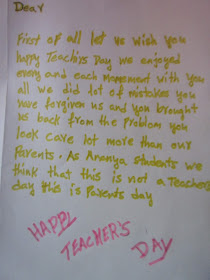 Dear
First of all let us wish you
happy Teachers Day we enjoyed
every and each movement with you
all we did lot of mistakes you
have forgiven us and you brought
us back from the problem you
look care lot more than our
Parents. As Ananya students we
think that this is not a Teachers
day this is Parents day
HAPPY
TEACHER'S
DAY